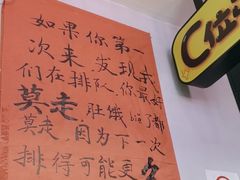 如果你第一
次来,发现我
们在排队,你最好
莫走,肚饿过了都
莫走,因为下一次
排得可能更久
C位